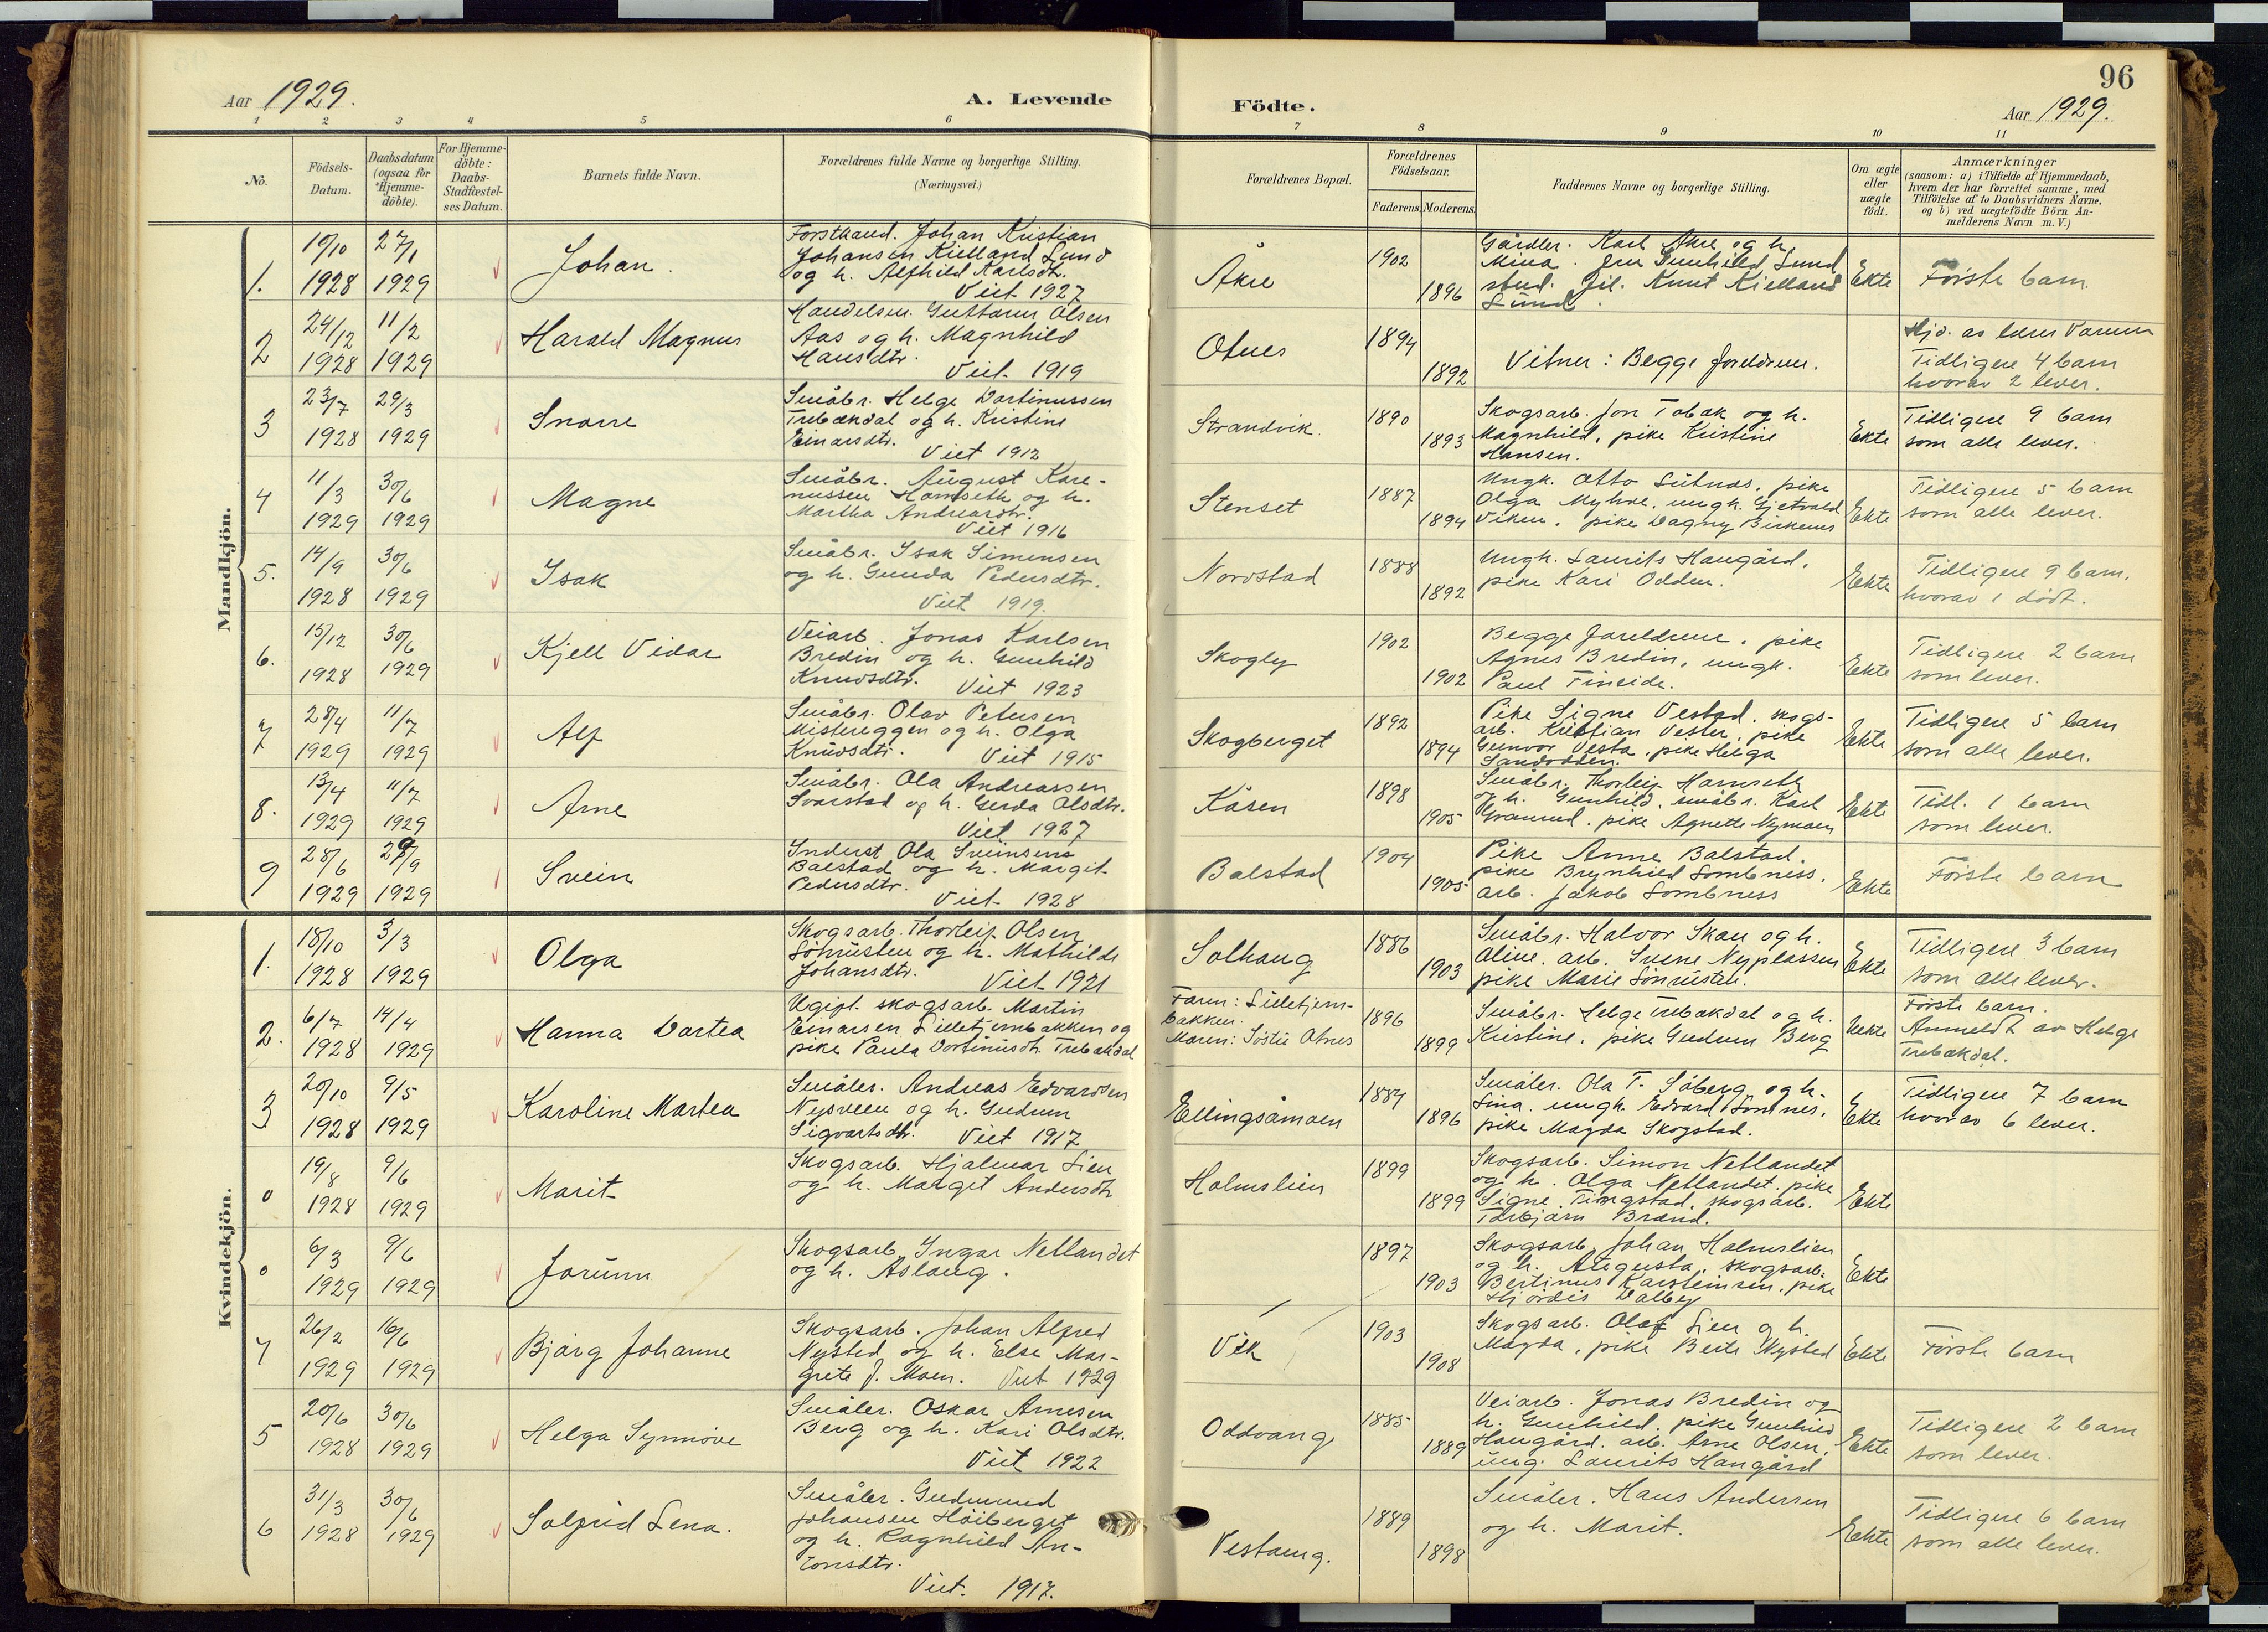 96
Aar 1929.
A. Levende
Födte.
Aar 1929.
1 2 3 4 5 6 7 8 9 10 11
No.
Födsels-
Datum.
Daabsdatum
(ogsaa for
Hjemme-
döbte).
For Hjemme-
döbte:
Daabs-
Stadfæstel-
ses Datum.
Barnets fulde Navn.
Forældrenes fulde Navne og borgerlige Stilling.
(Næringsvei.)
Forældrenes Bopæl.
Forældrenes
Födselsaar.
Faderens. Moderens.
Faddernes Navne og borgerlige Stilling.
Om ægte
eller
uægte
födt.
Anmærkninger
(saasom: a) i Tilfælde af Hjemmedaab,
hvem der har forrettet samme, med
Tilföielse af to Daabsvidners Navne,
og b) ved uægtefödte Börn An-
melderens Navn m.V.)
Mandkjön.
1.
10/10
1928
27/1
1929
Johan.
Forstkand. Johan Kristian
Johansen Kielland Lund
og h. Alfhild Karlsdtr.
Viet 1927
Åkre
1902
1896
Gårdbr. Karl Åkre og h.
Mina. fru Gunhild Lund
stud. fil. Knut Kielland
Lund.
Ekte
Förste barn.
2
24/12
1928
11/2
1929
Harald Magnus
Handelsm. Guttorm Olsen
Aas og h. Magnhild
Hansdtr.
Viet 1919
Otnes
1894
1892
Vitner: Begge foreldrene.
Hjd. av lærer
Tidligere 4 barn
hvorav 2 lever.
3
23/7
1928
29/3
1929
Snorre
Småbr. Helge Martinussen
Trebækdal og h. Kristine
Einarsdtr.
Viet 1912
Strandvik.
1890
1893
Skogsarb. Jon Tobak og h.
Magnhild, pike Kristine
Hansen.
Ekte
Tidligere 9 barn
som alle lever.
4
11/3
1929
30/6
1929
Magne
Småbr. August Kare-
nussen Hamseth og h.
Martha Andreasdtr.
Viet 1916
Stenset
1887
1894
Ungk. Otto Sütnes, pike
Olga Myhre, ungk. Gjetvald
Viken, pike Dagny Birkenes
Ekte
Tidligere 5 barn
som alle lever.
5.
14/9
1928
30/6
1929
Isak
Småbr. Isak Simensen
og h. Gunda Pedersdtr.
Viet 1919.
Nordstad
1888
1892
Ungk. Laurits Haugård,
pike Kari Odden.
Ekte
Tidligere 9 barn,
hvorav 1 dödt.
6.
15/12
1928
30/6
1929
Kjell Vidar
Veiarb. Jonas Karlsen
Bredin og h. Gunhild
Knudsdtr.
Viet 1923
Skogly
1902
1902
Begge foreldrene, pike
Agnes Bredin, ungk.
Paul Finseide.
Ekte
Tidligere 2 barn
som lever.
7
28/4
1929
11/7
1929
Alf
Småbr. Olav Petersen
Mistereggen og h. Olga
Knudsdtr.
Viet 1915
Skogberget
1892
1894
Pike Signe Vestad, skogs-
arb. Kristian Vester, pike
Gunvor Vesta, pike Helga
Sandodden.
Ekte
Tidligere 5 barn
som alle lever.
8.
13/4
1929
11/7
1929
Arne
Småbr. Ola Andreassen
Svarstad og h. Gerda Olsdtr.
Viet 1927
Kåsen
1898
1905
Småbr. Thorleif Hamseth
og h. Gunhild, småbr. Karl
Granrud, pike Agnette Nymoen
Ekte
Tidl. 1 barn
som lever.
9
28/6
1929
29/9
1929
Svein
Inderst Ola Sveinsen
Balstad og h. Margit
Pedersdtr.
Viet 1928
Balstad
1904
1905
Pike Anne Balstad,
pike Brynhild Sombness,
arb. Jakob Sombness
Ekte
Förste barn
Kvindekjön.
1.
18/10
1928
3/3
1929
Olga
Skogsarb. Thorleif Olsen
Sönrüsten og h. Mathilde
Johansdtr.
Viet 1921
Solhaug
1886
1903
Småbr. Halvor Skau og h.
Aline, arb. Svene Nyplassen
pike Marie Sönrüsten.
Ekte
Tidligere 3 barn
som alle lever.
2.
6/7
1928
14/4
1929
Hanna Dortea
Ugift skogsarb. Martin
Einarsen Lilletjernbakken og
pike Paula Martinusdtr Trebækdal
Faren: Lilletjern-
bakken.
Moren: Söstu Otnes
1896
1899
Småbr. Helge Trebækdal og h.
Kristine, pike Gudrun Berg
Uekte
Förste barn.
Anmeldt av Helge
Trebækdal.
3
20/10
1928
9/5
1929
Karoline Martea
Småbr. Andreas Edvardsen
Nysveen og h. Gudrun
Sigvartsdtr. Viet 1917
Ellingsåmoen
1884
1896
Småbr. Ola T. Söberg og h.
Lina, ungk. Edvard Sombnes,
pike Magda Skogstad.
Ekte
Tidligere 7 barn
hvorav 6 lever.
0
19/8
1928
9/6
1929
Marit
Skogsarb. Hjalmar Lien
og h. Marget Andersdtr
Holmslien
1899
1899
Skogsarb. Simon Netlandet
og h. Olga Netlandet, pike
Signe Tingstad, skogsarb.
Torbjörn Brænd.
Ekte
0
6/3
1929
9/6
1929
Jorünn
Skogsarb. Ingar Netlandet
og h. Aslaug.
1897
1903
Skogsarb. Johan Holmslien
og h. Augusta, skogsarb.
Bertinus Karsteinsen, pike
Hjördis Dalby
Ekte
4
26/2
1929
16/6
1929
Bjårg Johanne
Skogsarb. Johan Alfred
Nysted og h. Else Mar-
grete J. Moen. Viet 1929
Vik
1903
1908
Skogsarb. Olaf Lien og h.
Magda, pike Berte Nysted
Ekte
Förste barn
5
20/6
1928
30/6
1929
Helga Synnöve
Småbr. Oskar Arnesen
Berg og h. Kari Olsdtr.
Viet 1922
Oddvang
1885
1889
Veiarb. Jonas Bredin og
h. Gunhild, pike Gunhild
Haugård, arb. Arne Olsen,
ung. Laurits Haugård
Ekte
Tidligere 2 barn
som lever.
6
31/3
1928
30/6
1929
Solfrid Lena.
Småbr. Gudmund
Johansen Höiberget
og h. Ragnhild An-
tonsdtr.
Viet. 1917.
Vestaug.
1889
1898
Småbr. Hans Andersen
og h. Marit.
Ekte
Tidligere 6 barn
som alle lever.